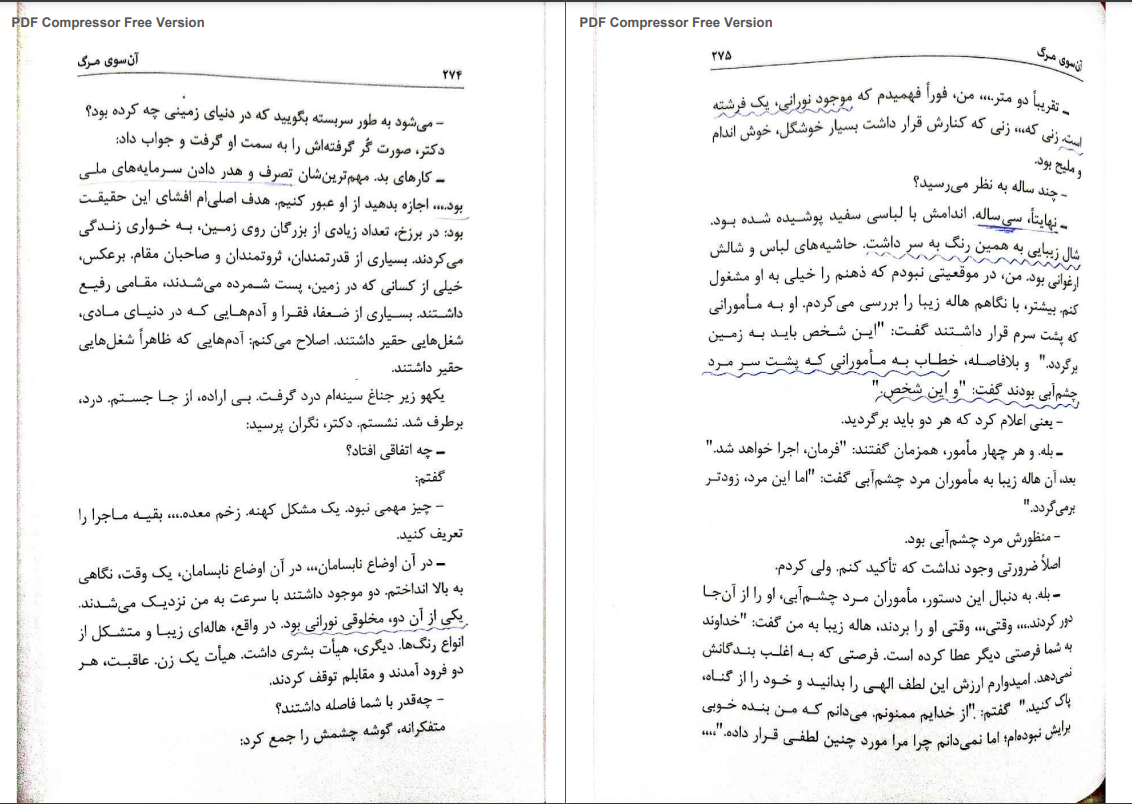 PDF Compressor Free Version
آن‌سوی مرگ
۲۷۴
- می‌شود به طور سربسته بگویید که در دنیای زمینی چه کرده بود؟
دکتر، صورت گُر گرفته‌اش را به سمت او گرفت و جواب داد:
ـ کارهای بد. مهم‌ترین‌شان تصرف و هدر دادن سـرمایه‌های ملـی
بود.،،، اجازه بدهید از او عبور کنیم. هدف اصلی‌ام افشای این حقیقـت
بود: در برزخ، تعداد زیادی از بزرگان روی زمـین، بـه خـواری زنـدگی
می‌کردند. بسیاری از قدرتمندان، ثروتمندان و صاحبان مقام. برعکس،
خیلی از کسانی که در زمین، پست شـمرده می‌شـدند، مقـامی رفیـع
داشـتند. بسـیاری از ضـعفا، فقـرا و آدم‌هـایی کـه در دنیـای مـادی،
شغل‌هایی حقیر داشتند. اصلاح می‌کنم: آدم‌هایی که ظاهراً شغل‌هایی
حقیر داشتند.
یکهو زیر جناغ سینه‌ام درد گرفـت. بـی اراده، از جـا جسـتم. درد،
برطرف شد. نشستم. دکتر، نگران پرسید:
ـ چه اتفاقی افتاد؟
گفتم:
- چیز مهمی نبود. یک مشکل کهنه. زخم معده.،،، بقیـه مـاجرا را
تعریف کنید.
ـ در آن اوضاع نابسامان،،، در آن اوضاع نابسامان، یک وقت، نگاهی
به بالا انداختم. دو موجود داشتند با سرعت به من نزدیـک می‌شـدند.
یکی از آن دو، مخلوقی نورانی بود. در واقع، هاله‌ای زیبـا و متشـکل از
انواع رنگ‌ها. دیگری، هیأت بشری داشت. هیأت یک زن. عاقبـت، هـر
دو فرود آمدند و مقابلم توقف کردند.
- چه‌قدر با شما فاصله داشتند؟
متفکرانه، گوشه چشمش را جمع کرد:
PDF Compressor Free Version
آن‌سوی مرگ
۲۷۵
ـ تقریباً دو متر.،،، من، فوراً فهمیدم که موجود نورانی، یک فرشته
است. زنی که،،، زنی که کنارش قرار داشت بسیار خوشگل، خوش اندام
و ملیح بود.
- چند ساله به نظر می‌رسید؟
ـ نهایتاً، سی‌ساله. اندامش با لباسی سفید پوشیده شـده بـود.
شال زیبایی به همین رنگ به سر داشت. حاشیه‌های لباس و شالش
ارغوانی بود. من، در موقعیتی نبودم که ذهنم را خیلی به او مشغول
کنم. بیشتر، با نگاهم هاله زیبا را بررسی می‌کردم. او بـه مـأمورانی
که پشت سرم قرار داشـتند گفـت: "ایـن شـخص بایـد بـه زمـین
برگردد." و بلافاصله، خطـاب بـه مـأمورانی کـه پشـت سـر مـرد
چشم‌آبی بودند گفت: "و این شخص."
- یعنی اعلام کرد که هر دو باید برگردید.
ـ بله. و هر چهار مأمور، همزمان گفتند: "فرمان، اجرا خواهد شد."
بعد، آن هاله زیبا به مأموران مرد چشم‌آبی گفت: "اما این مرد، زودتـر
برمی‌گردد."
- منظورش مرد چشم‌آبی بود.
اصلاً ضرورتی وجود نداشت که تأکید کنم. ولی کردم.
ـ بله. به دنبال این دستور، مأموران مـرد چشـم‌آبی، او را از آن‌جـا
دور کردند.،،، وقتی،،، وقتی او را بردند، هاله زیبا به من گفت: "خداوند
به شما فرصتی دیگر عطا کرده است. فرصتی که بـه اغلـب بنـدگانش
نمی‌دهد. امیدوارم ارزش این لطف الهـی را بدانیـد و خـود را از گنـاه،
پاک کنید." گفتم: "از خدایم ممنونم. می‌دانم کـه مـن بنـده خـوبی
برایش نبوده‌ام؛ اما نمی‌دانم چرا مرا مورد چنین لطفـی قـرار داده."،،،،